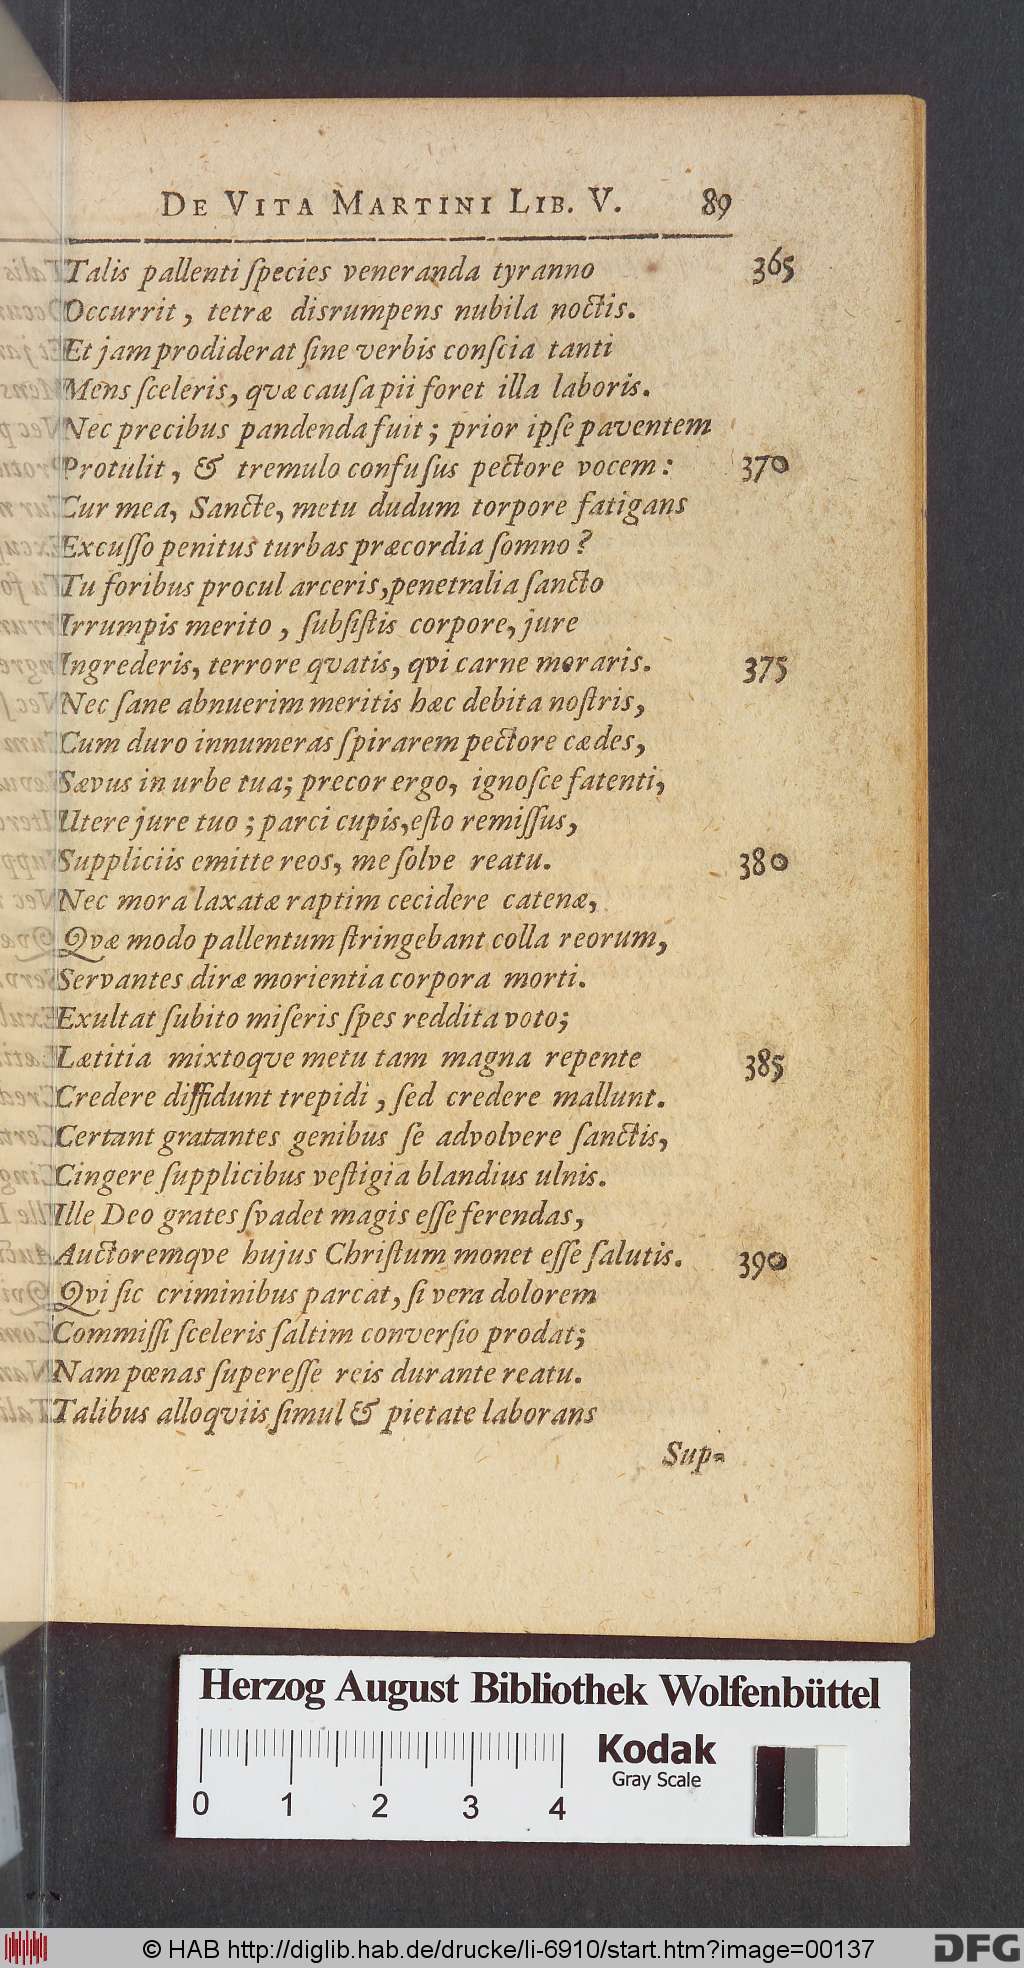 DE VITA MARTINI LIB. V. 89
Talis pallenti ſpecies veneranda tyranno 365
Occurrit, tetræ disrumpens nubila noctis.
Et jam prodiderat ſine verbis conſcia tanti
Mens ſceleris, qvæ cauſa pii foret illa laboris.
Nec precibus pandenda fuit; prior ipſe paventem
Protulit, & tremulo confuſus pectore vocem: 370
Cur mea, Sancte, metu dudum torpore fatigans
Excuſſo penitus turbas præcordia ſomno?
Tu foribus procul arceris, penetralia ſancto
Irrumpis merito, ſubſiſtis corpore, jure
Ingrederis, terrore qvatis, qvi carne moraris. 375
Nec ſane abnuerim meritis hæc debita noſtris,
Cum duro innumeras ſpirarem pectore cædes,
Sævus in urbe tua; precor ergo, ignoſce fatenti,
Utere jure tuo; parci cupis, eſto remiſſus,
Suppliciis emitte reos, me ſolve reatu. 380
Nec mora laxatæ raptim cecidere catenæ,
Qvæ modo pallentum ſtringebant colla reorum,
Servantes diræ morientia corpora morti.
Exultat ſubito miſeris ſpes reddita voto;
Lætitia mixtoqve metu tam magna repente 385
Credere diffidunt trepidi, ſed credere mallunt.
Certant gratantes genibus ſe advolvere ſanctis,
Cingere ſupplicibus veſtigia blandius ulnis.
Ille Deo grates ſvadet magis eſſe ferendas,
Auctoremqve hujus Chriſtum monet eſſe ſalutis. 390
Qvi ſic criminibus parcat, ſi vera dolorem
Commiſſi ſceleris ſaltim converſio prodat;
Nam pœnas ſupereſſe reis durante reatu.
Talibus alloqviis ſimul & pietate laborans
Sup-
Herzog August Bibliothek Wolfenbüttel
Kodak
Gray Scale
0 1 2 3 4
© HAB http://diglib.hab.de/drucke/li-6910/start.htm?image=00137
DFG